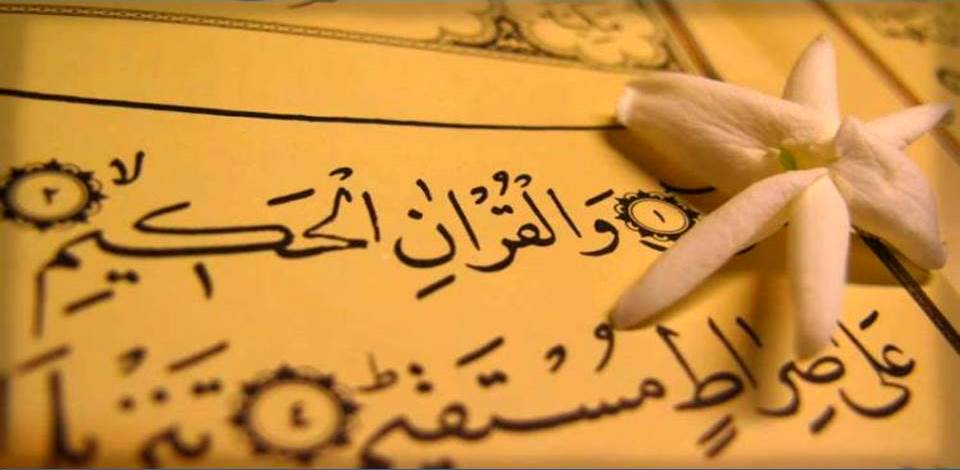 ۝١ وَالْقُرْاٰنِ الْحَكِيْمِ ۝٢ ۙ
عَلٰى صِرَاطٍ مُّسْتَقِيْمٍ ۝٤ ؕ تَنْزِيْلَ